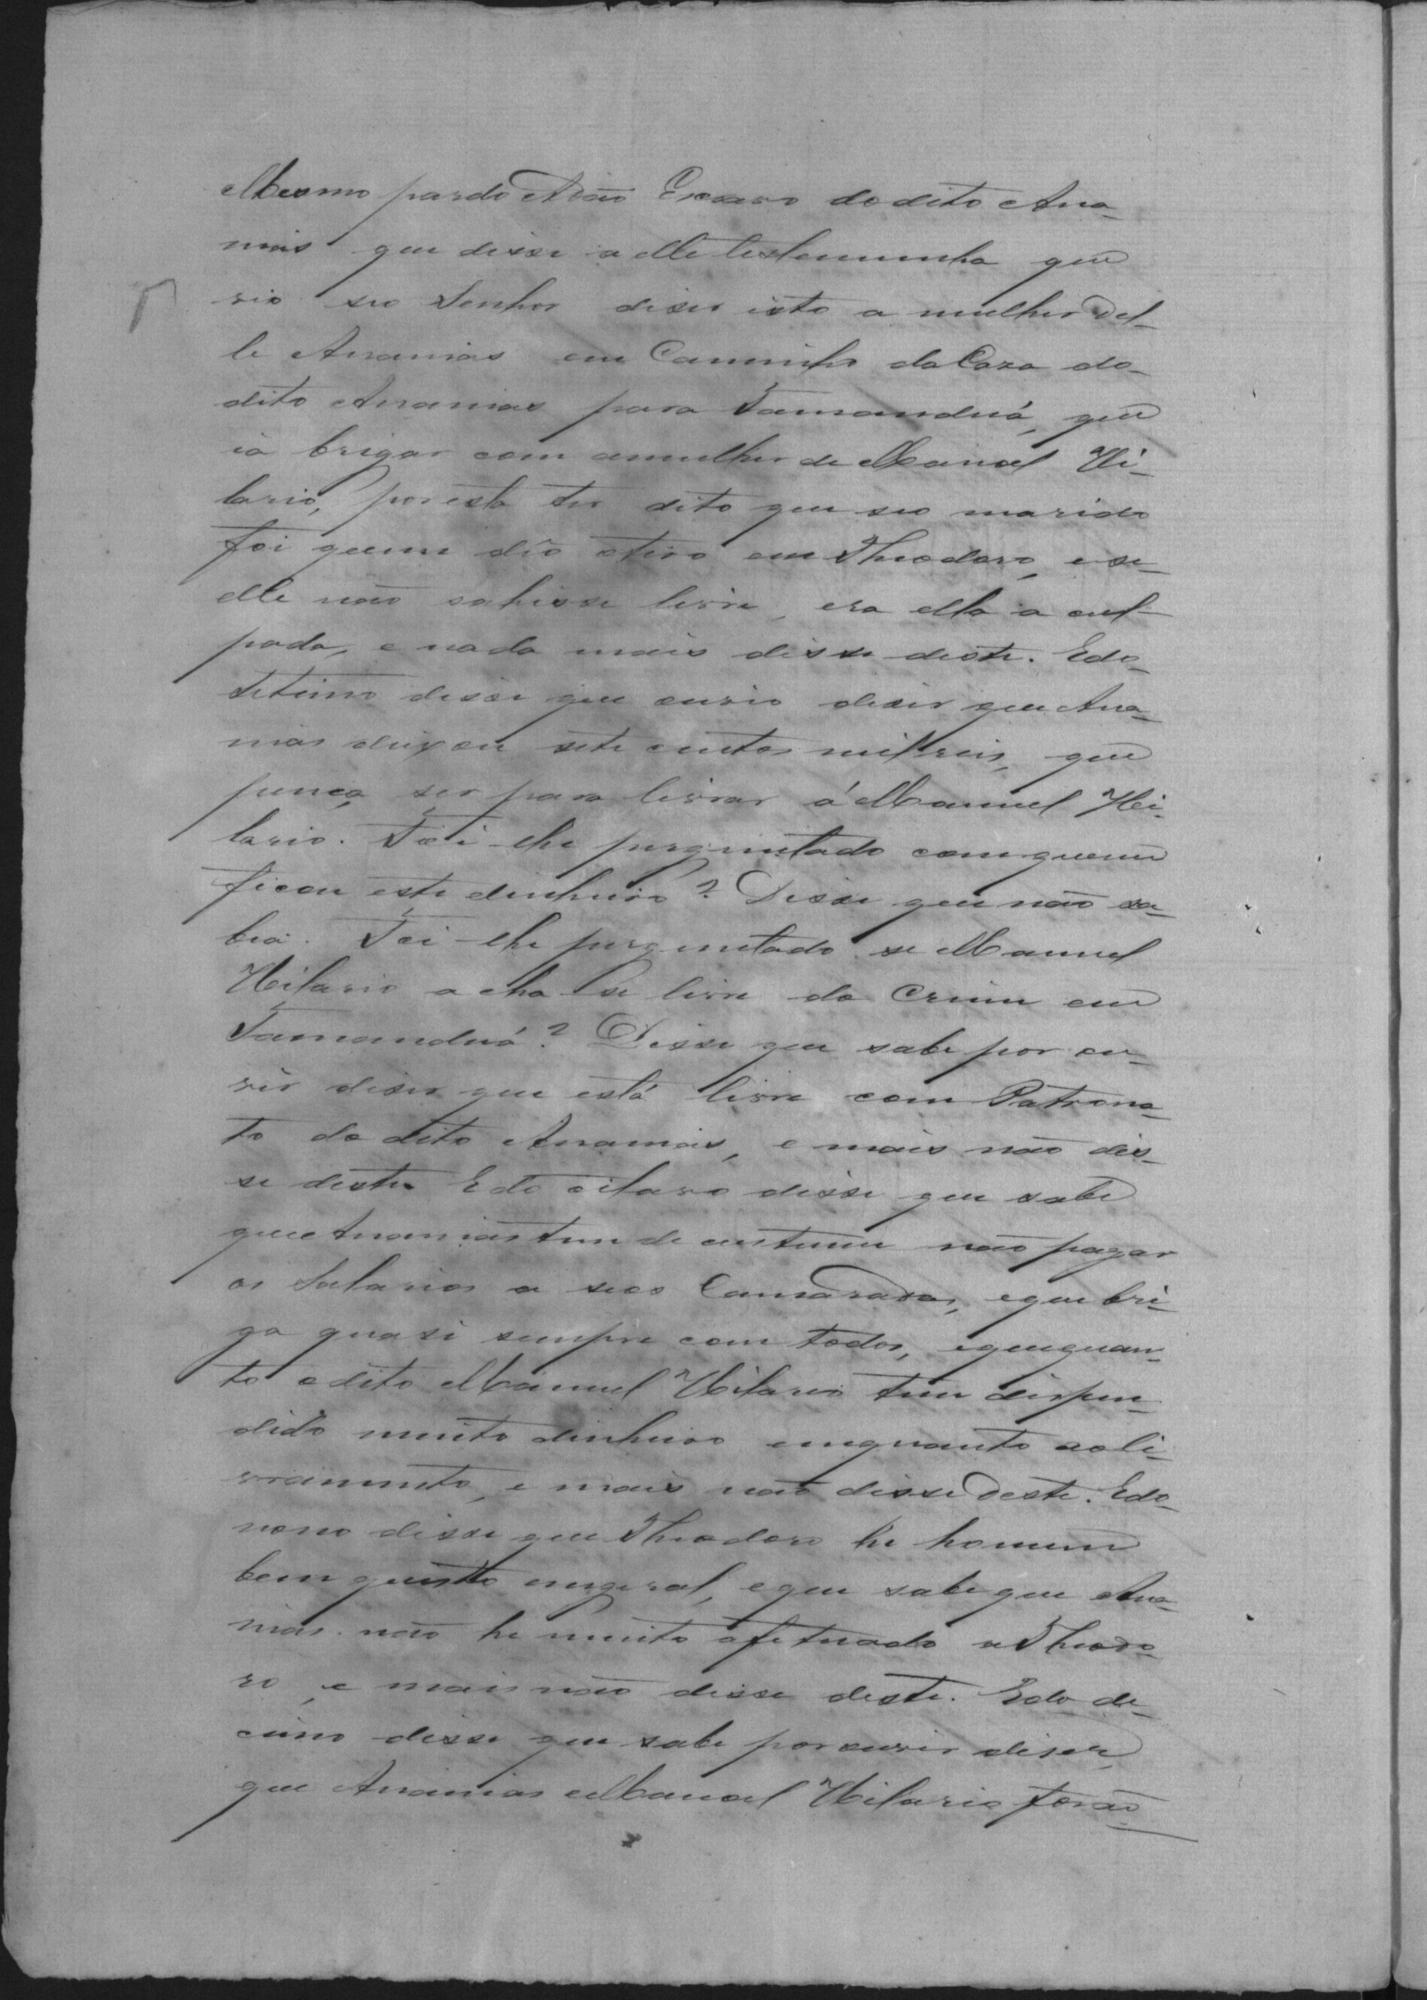 Mesmo pardo Adão Escravo do dito Ana-
nias que disse a elle testemunha que
vio seo Senhor diser isto a mulher del-
le Ananias em Caminho da Caza do
dito Ananias para Tamanduá, que
ia brigar com amulher de Manoel Hi-
lario, por esta ter dito que seo marido
foi quem dio otiro em Theodoro, e se
elle não sahisse livre, era ella a cul-
pada, e nada mais disse deste. Edo
setimo disse que ouvio diser que Ana-
nias deixou sete centos mil reis, que
pença ser para livrar á Manuel Hi-
lario. Foi-lhe perguntado comquem
ficou este dinheiro? Disse que não sa-
bia. Foi-lhe perguntado se Manuel
Hilario acha-se livre do Crime em
Tamanduá? Disse que sabe por ou-
vir diser que está livre com Patrona-
to do dito Ananias, e mais não dis-
se deste. Edo oitavo disse que sabe
que Ananias tem de custume não pagar
os Salarios a seos Camaradas, eque bri-
ga quasi sempre com todos, equequan-
to odito Manuel Hilario tem dispen-
dido muito dinheiro emquanto aoli-
vramento, e mais não disse deste. Edo
nono disse que Theodoro he homem
bem quisto emgeral, eque sabe que Ana-
nias não he muito afetuado a Theodo-
ro, e mais não disse deste. Edo de-
cimo disse que sabe porouvir diser
que Ananias eManoel Hilario forão